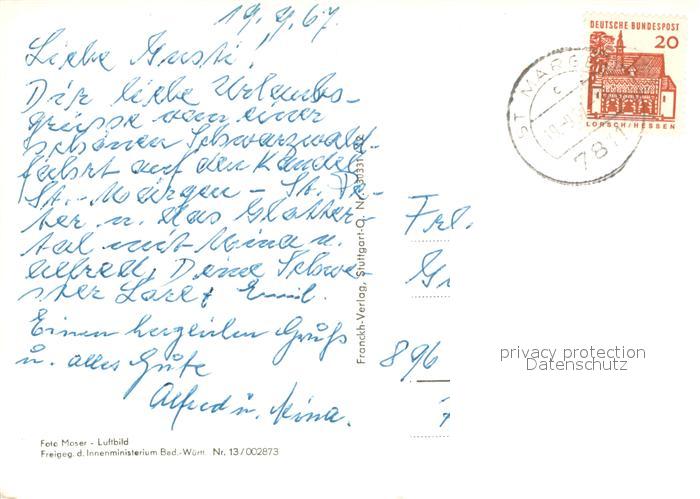 19.9.67
Liebe Gusti!
Dir liebe Urlaubs-
grüsse von einer
schönen Schwarzwald-
fahrt auf den Kandel
St. Märgen - St. Pe-
ter u. das Glotter-
tal mit Mina u.
Alfred, Deine Schwe-
ster Lore & Emil.
Einen herzlichen Gruß
u. alles Gute
Alfred u. Mina.
Foto Moser - Luftbild
Freigeg. d. Innenministerium Bad.-Württ. Nr. 13/002873
Franckh-Verlag, Stuttgart-O. Nr.
DEUTSCHE BUNDESPOST
20
LORSCH/HESSEN
ST. MÄRGEN
78
Frl.
896
privacy protection
Datenschutz